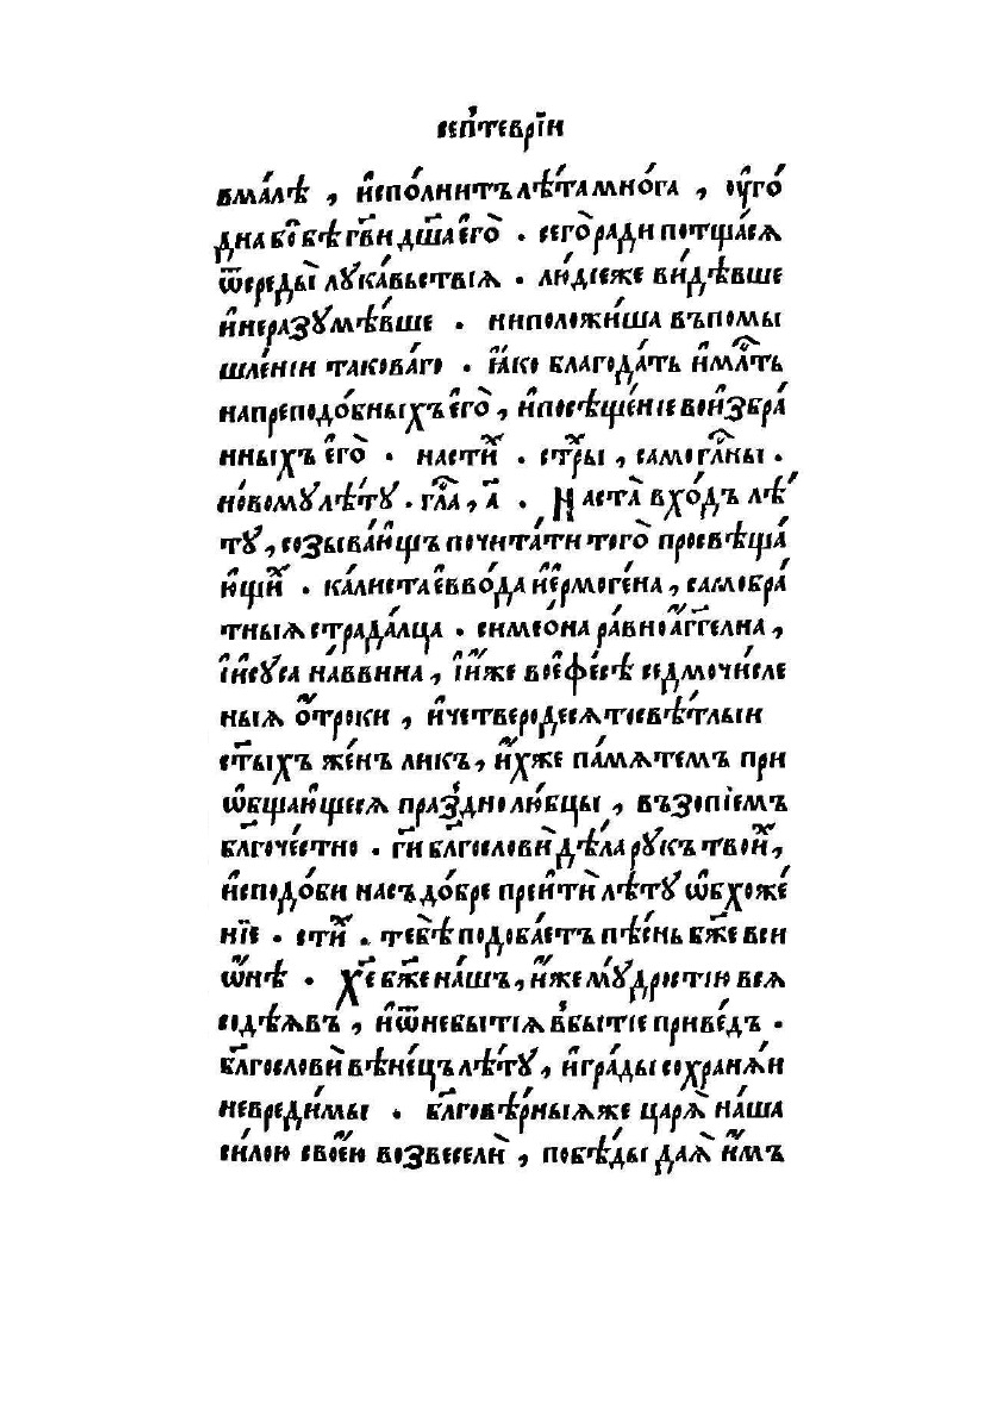 сеп҆теврїи
вма́лѣ , и҆спо́лнитъ лѣ́та мно́га , оу҆го́
дна бо̀ бѣ гв҃и дш҃а е҆го̀ . сего̀ ради потща́сѧ
ѿ среды̀ лука́вьствїѧ . лю́дїе же ви́дѣвше
и҆ неразумѣ́вше . ни положи́ша въ помы
шле́нїи такова́го . ꙗ҆́ко благода́ть и҆ мл҇ть
на преподо́бныхъ е҆го̀ , и҆ посѣще́нїе во и҆збра́
нныхъ е҆го̀ . на стиⷯ . стрⷯы , самогл҇ны .
но́вому лѣ́ту . гл҇а , а҃ . Наста̀ вхо́дъ лѣ́
ту , созыва́ющъ почита́ти того̀ просвѣща́
ющиⷯ . ка́листа е҆вво́да и҆ е҆рмоге́на , самобра́
тныѧ страда́лца . симео́на ра́вноа҆́гг҃елна ,
і҆и҆су́са на́ввина , і҆ и҆́же во е҆фе́сѣ седмочи́сле
ныѧ о҆́троки , и҆ четверодесѧтосвѣ́тлыи
ст҃ыхъ же́нъ ликъ , и҆́хже па́мѧтемъ при
ѡ҆бща́ющесѧ празднолю́бцы , възопїемъ
бл҃гоче́стно . гп҃и бл҃гословѝ дѣ́ла рукъ твоиⷯ ,
и҆ сподо́би насъ до́бре преитѝ лѣ́ту ѡ҆бхоже́
нїе . стиⷯ . тебѣ̀ подоба́етъ пѣ́снь бж҃е в си
ѡ҆́нѣ . Хе҃ бж҃е на́шъ , и҆́же му́дростїю всѧ
содѣ́ѧвъ , и҆ ѿ небытїѧ в бытїе приве́дъ .
бл҃гословѝ вѣне́цъ лѣ́ту , и҆ гра́ды сохранѧ́и
невреди́мы . бл҃говѣ́рныѧ же царѧ̀ на́ша
си́лою свое́ю возвеселѝ , побѣ́ды даѧ̀ и҆́мъ